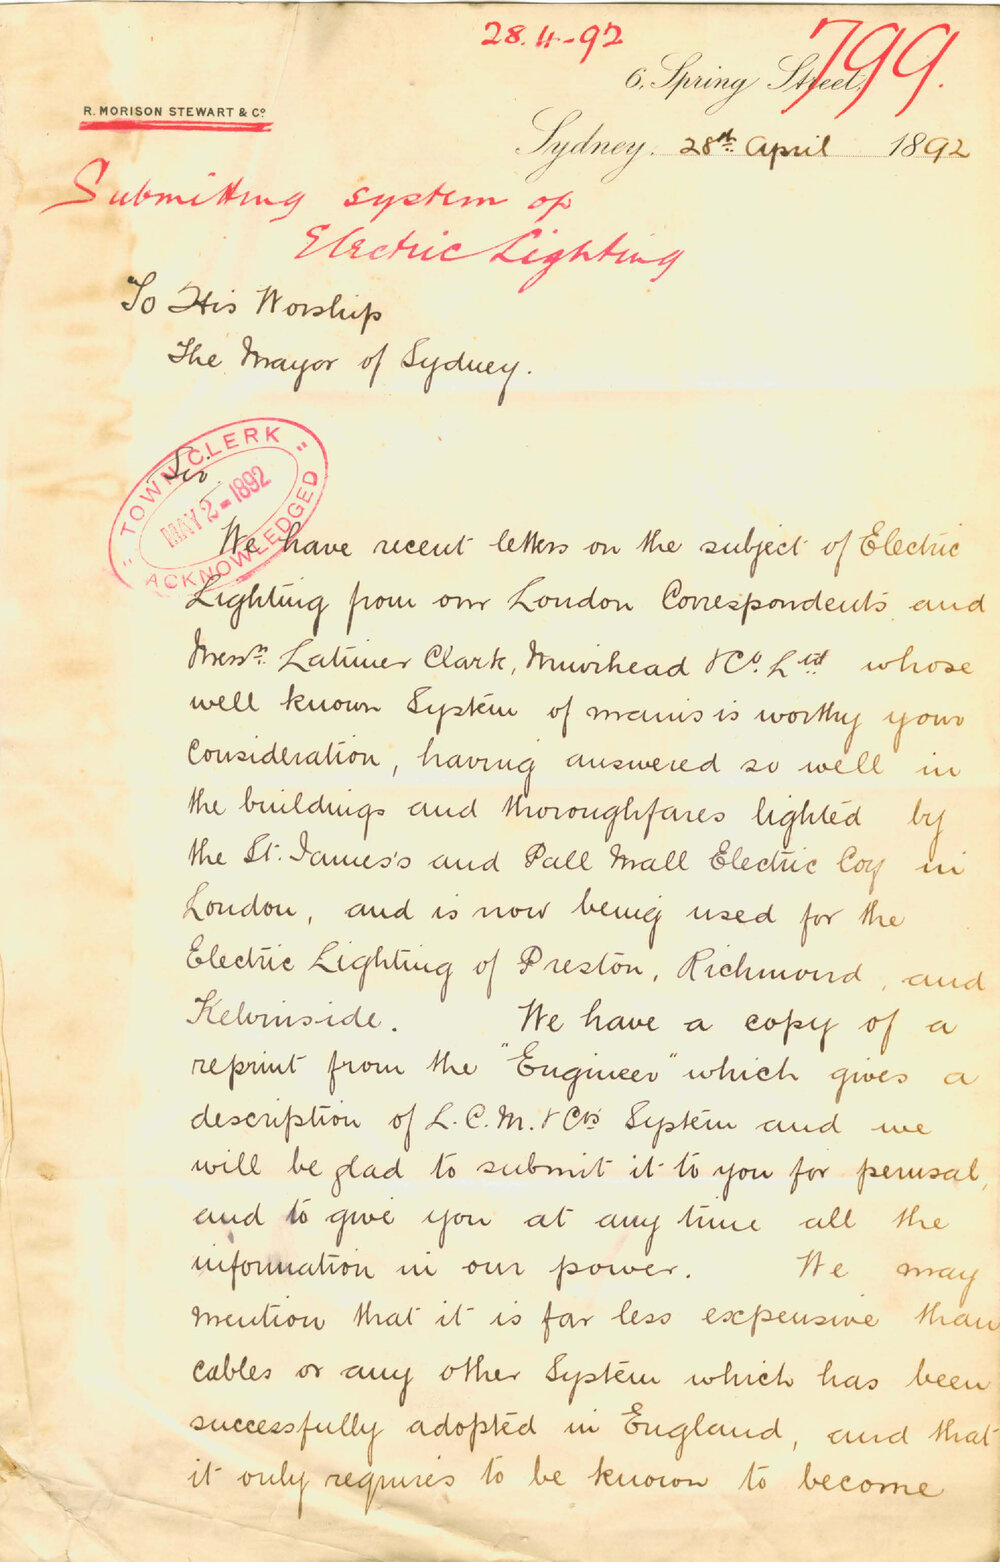 28.4-92
799.
6, Spring Street,
R. MORISON STEWART & Co.
Sydney. 28th April 1892
Submitting system of
Electric Lighting
To His Worship
The Mayor of Sydney.
"TOWN CLERK"
MAY 2-1892
ACKNOWLEDGED
Sir
We have recent letters on the subject of Electric
Lighting from our London Correspondents and
Messrs. Latimer Clark, Muirhead & Co. Ltd whose
well known System of mains is worthy your
Consideration, having answered so well in
the buildings and thoroughfares lighted by
the St. James's and Pall Mall Electric Coy in
London, and is now being used for the
Electric Lighting of Preston, Richmond, and
Kelvinside. We have a copy of a
reprint from the "Engineer" which gives a
description of L.C.M. & Co's System and we
will be glad to submit it to you for perusal,
and to give you at any time all the
information in our power. We may
mention that it is far less expensive than
cables or any other System which has been
successfully adopted in England, and that
it only requires to be known to become